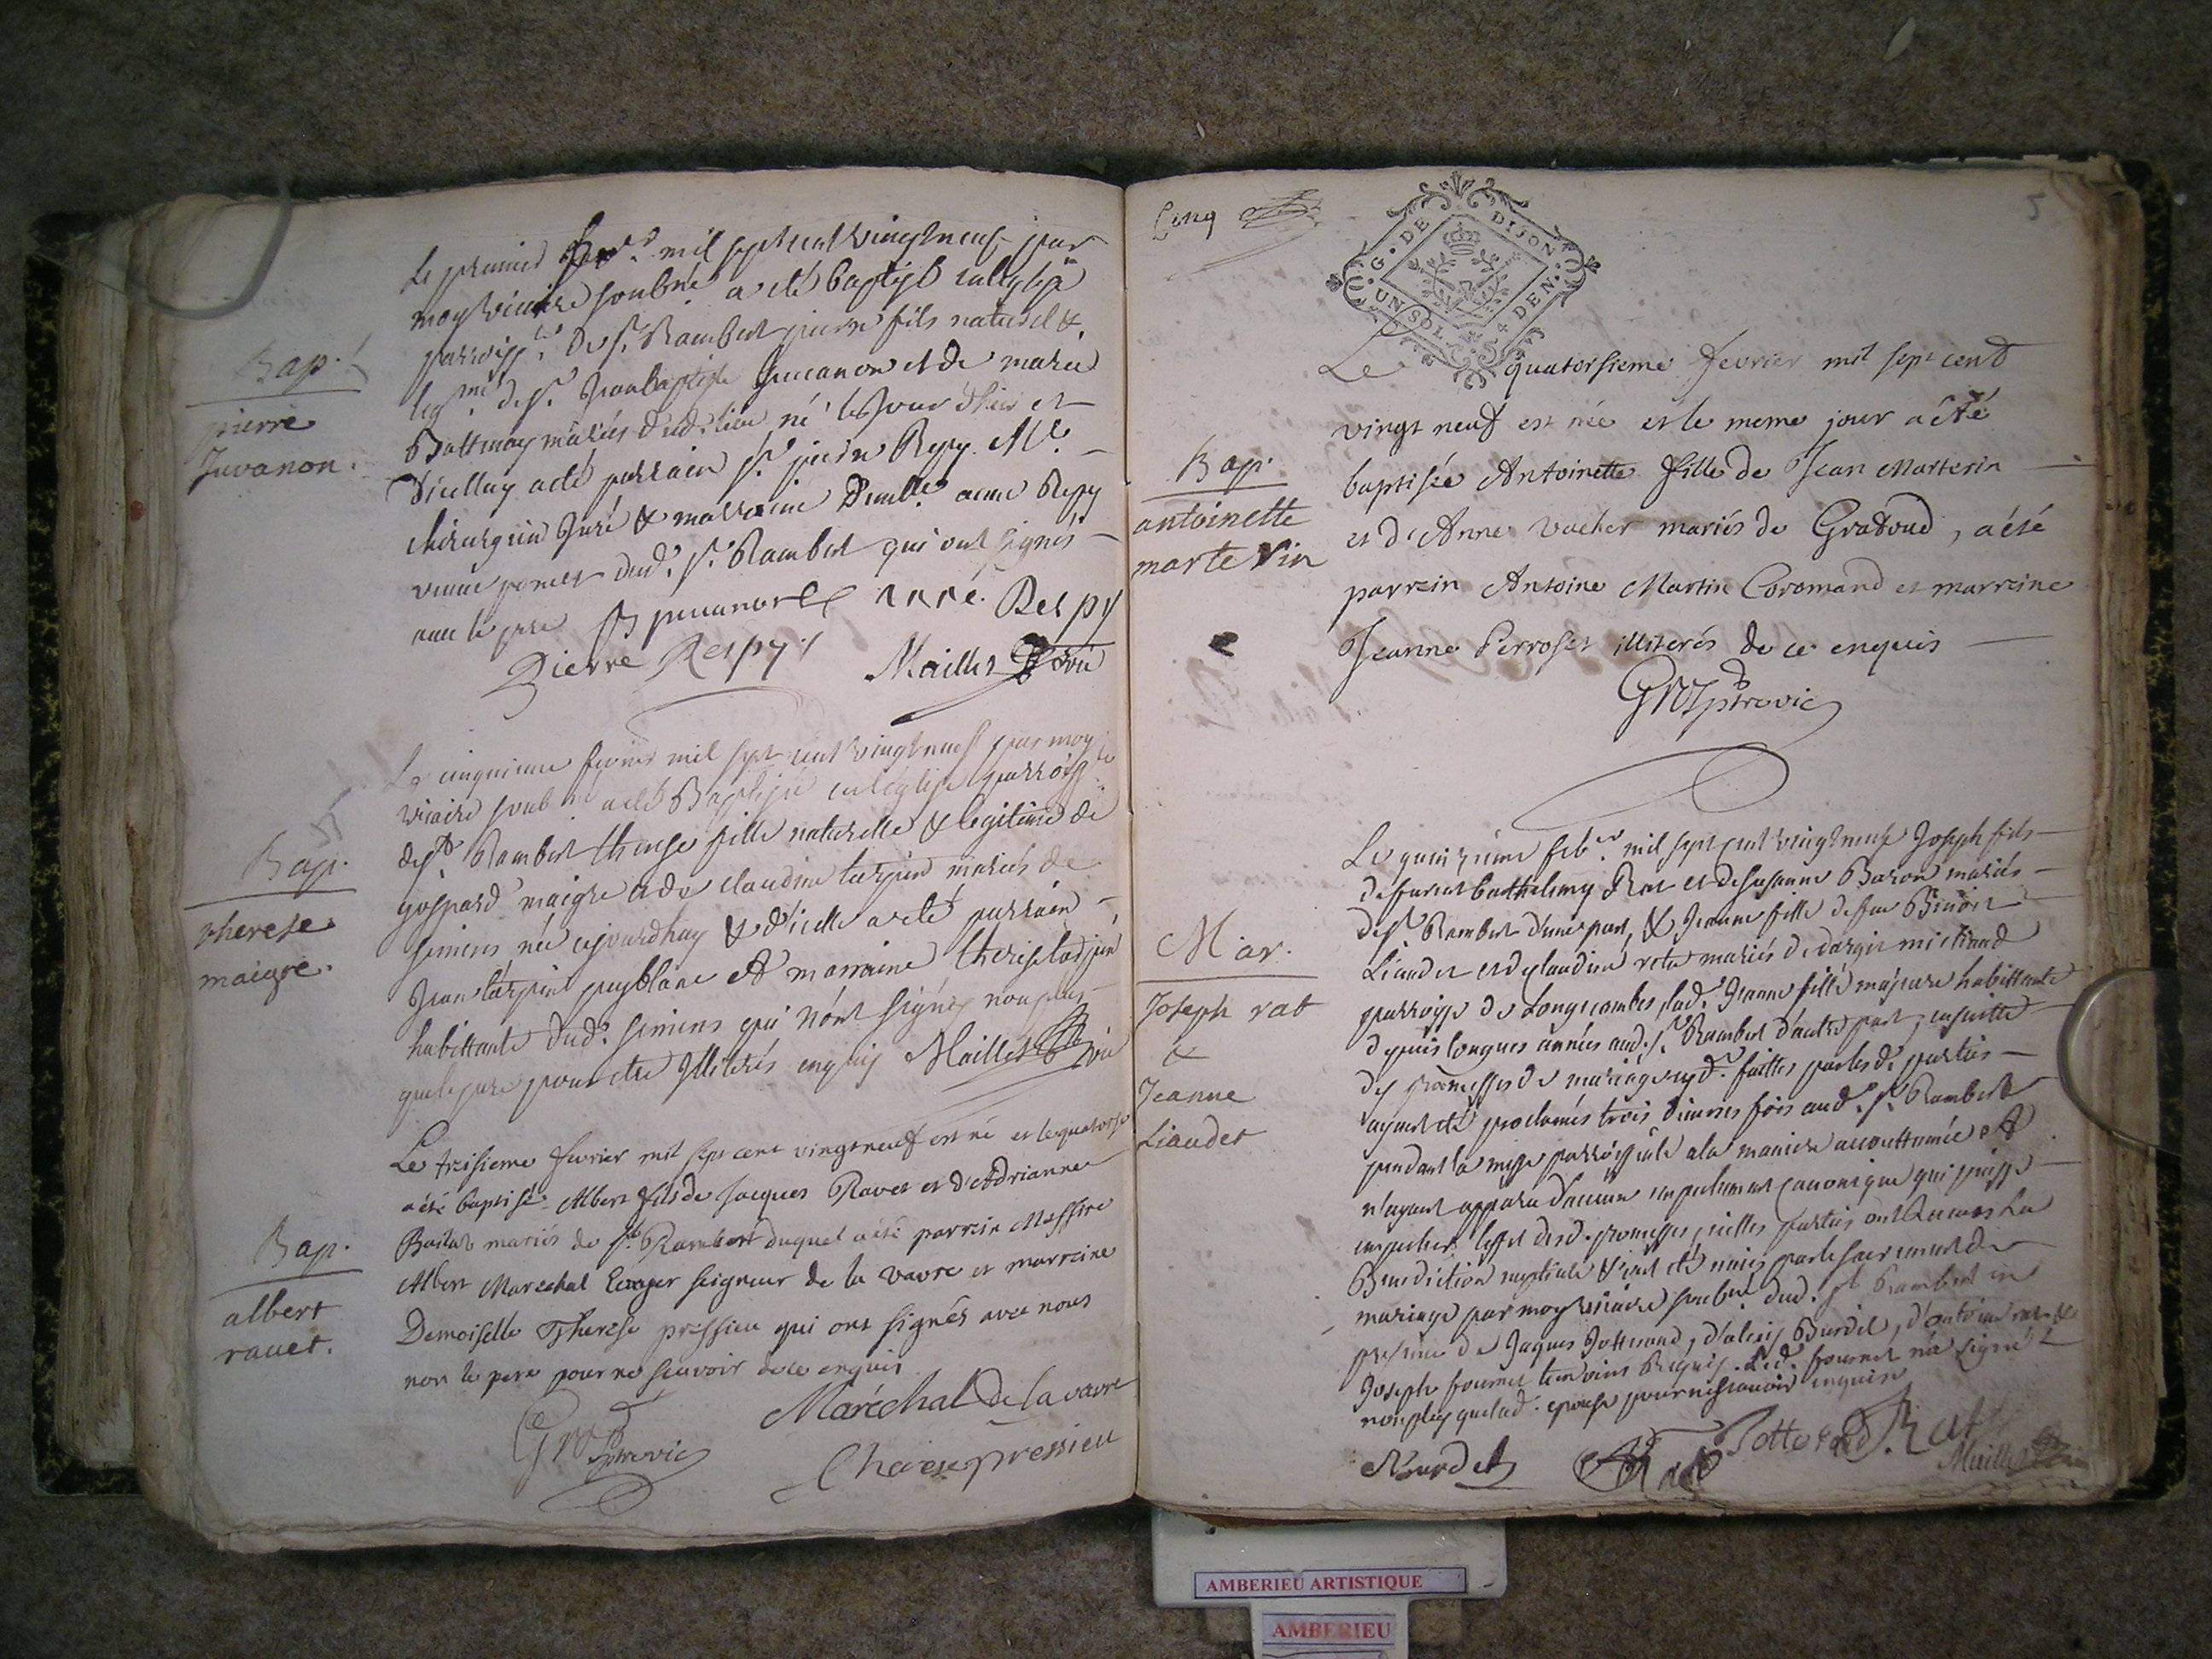 Bap.
pierre
Juvanon.
Le premier fevr. mil sept cent vingt neuf par
moy vicaire soubné a eté baptisé en l'eglise
parroissle. de st. Rambert pierre fils naturel &
legme. de sr. Jean baptiste Juuanon et de marie
mariés dud. lieu né le jour d'hier et
d'icelluy a eté parrain sr. pierre Repy Me.
chirurgien Juré & marraine Dmlle. anne Repy
dud. st. Rambert qui ont signés
auec le pere Juuanon Respy
Pierre Respy Maillet vic
Bap.
therese
maigre.
Le cinquieme feurier mil sept cent vingt neuf par moy
vicaire soubné a eté Baptisé en l'eglise parroissle
de st. Rambert therese fille naturelle & legitime de
gaspard maigre et de claudine tarpin mariés de
simiens née ajourdhuy & d'icelle a eté parrain
Jean tarpin et marraine therese tarpin
habittante dud. simiens qui n'ont signés non plus
que le pere pour etre Illiterés enquis Maillet vic
Bap.
albert
rauet.
Le treisieme feurier mil sept cent vingt neuf est né et le quatorse
a été baptisé Albert fils de Jacques Ravet et d'Adrianne
mariés de st. Rambert duquel a été parrein Messire
Albert Marechal Ecuyer seigneur de la vavre et marreine
Demoiselle Therese pressieu qui ont signés avec nous
non le pere pour ne scavoir de ce enquis
Maréchal De la vavre
Gros ptre vic
therese pressieu
Cinq
5
G. DE DIJON
UN SOL 4 DEN.
Bap.
antoinette
martervin
Le quatorsieme fevrier mil sept cent
vingt neuf est née et le meme jour a été
baptisée Antoinette fille de Jean Marterin
et d'Anne vacher mariés de Gratoud, a été
parrein Antoine Martin Coromand et marreine
Jeanne Perroset illiterés de ce enquis
Gros ptre vic
Mar.
Joseph rat
&
Jeanne
Liaudet
Le quinzieme feber. mil sept cent vingt neuf Joseph fils
de furent barthelemy Rat et de susanne Baron mariés
de st. Rambert d'une part, & Jeanne fille de feu Benoit
Liaudet et de claudine mariés de
parroisse de Longecombes, lad. Jeanne fille majeure habittante
depuis longues années aud. st. Rambert d'autre part, ensuitte
des promesses de mariage faittes par lesd. parties
ayant eté proclamés trois diuerses fois aud. st. Rambert
pendant la messe parroissiale a la maniere accouttumée et
n'ayant apparu d'aucun empechement canonique qui puisse
empecher l'effet desd. promesses, icelles parties ont Receues La
Benediction nuptiale & ont eté unies par le sacrement de
mariage par moy vicaire soubné dud. st. Rambert en
presence de Jaques Jottrand, d'alexis Burdet, d'antoine rat &
Joseph fournet temoins Requis. Led. fournet n'a signé
non plus que lad. epouse pour ne scauoir enquise
Burdet Rat Jottrand Rat
Maillet vic
AMBERIEU ARTISTIQUE
AMBERIEU